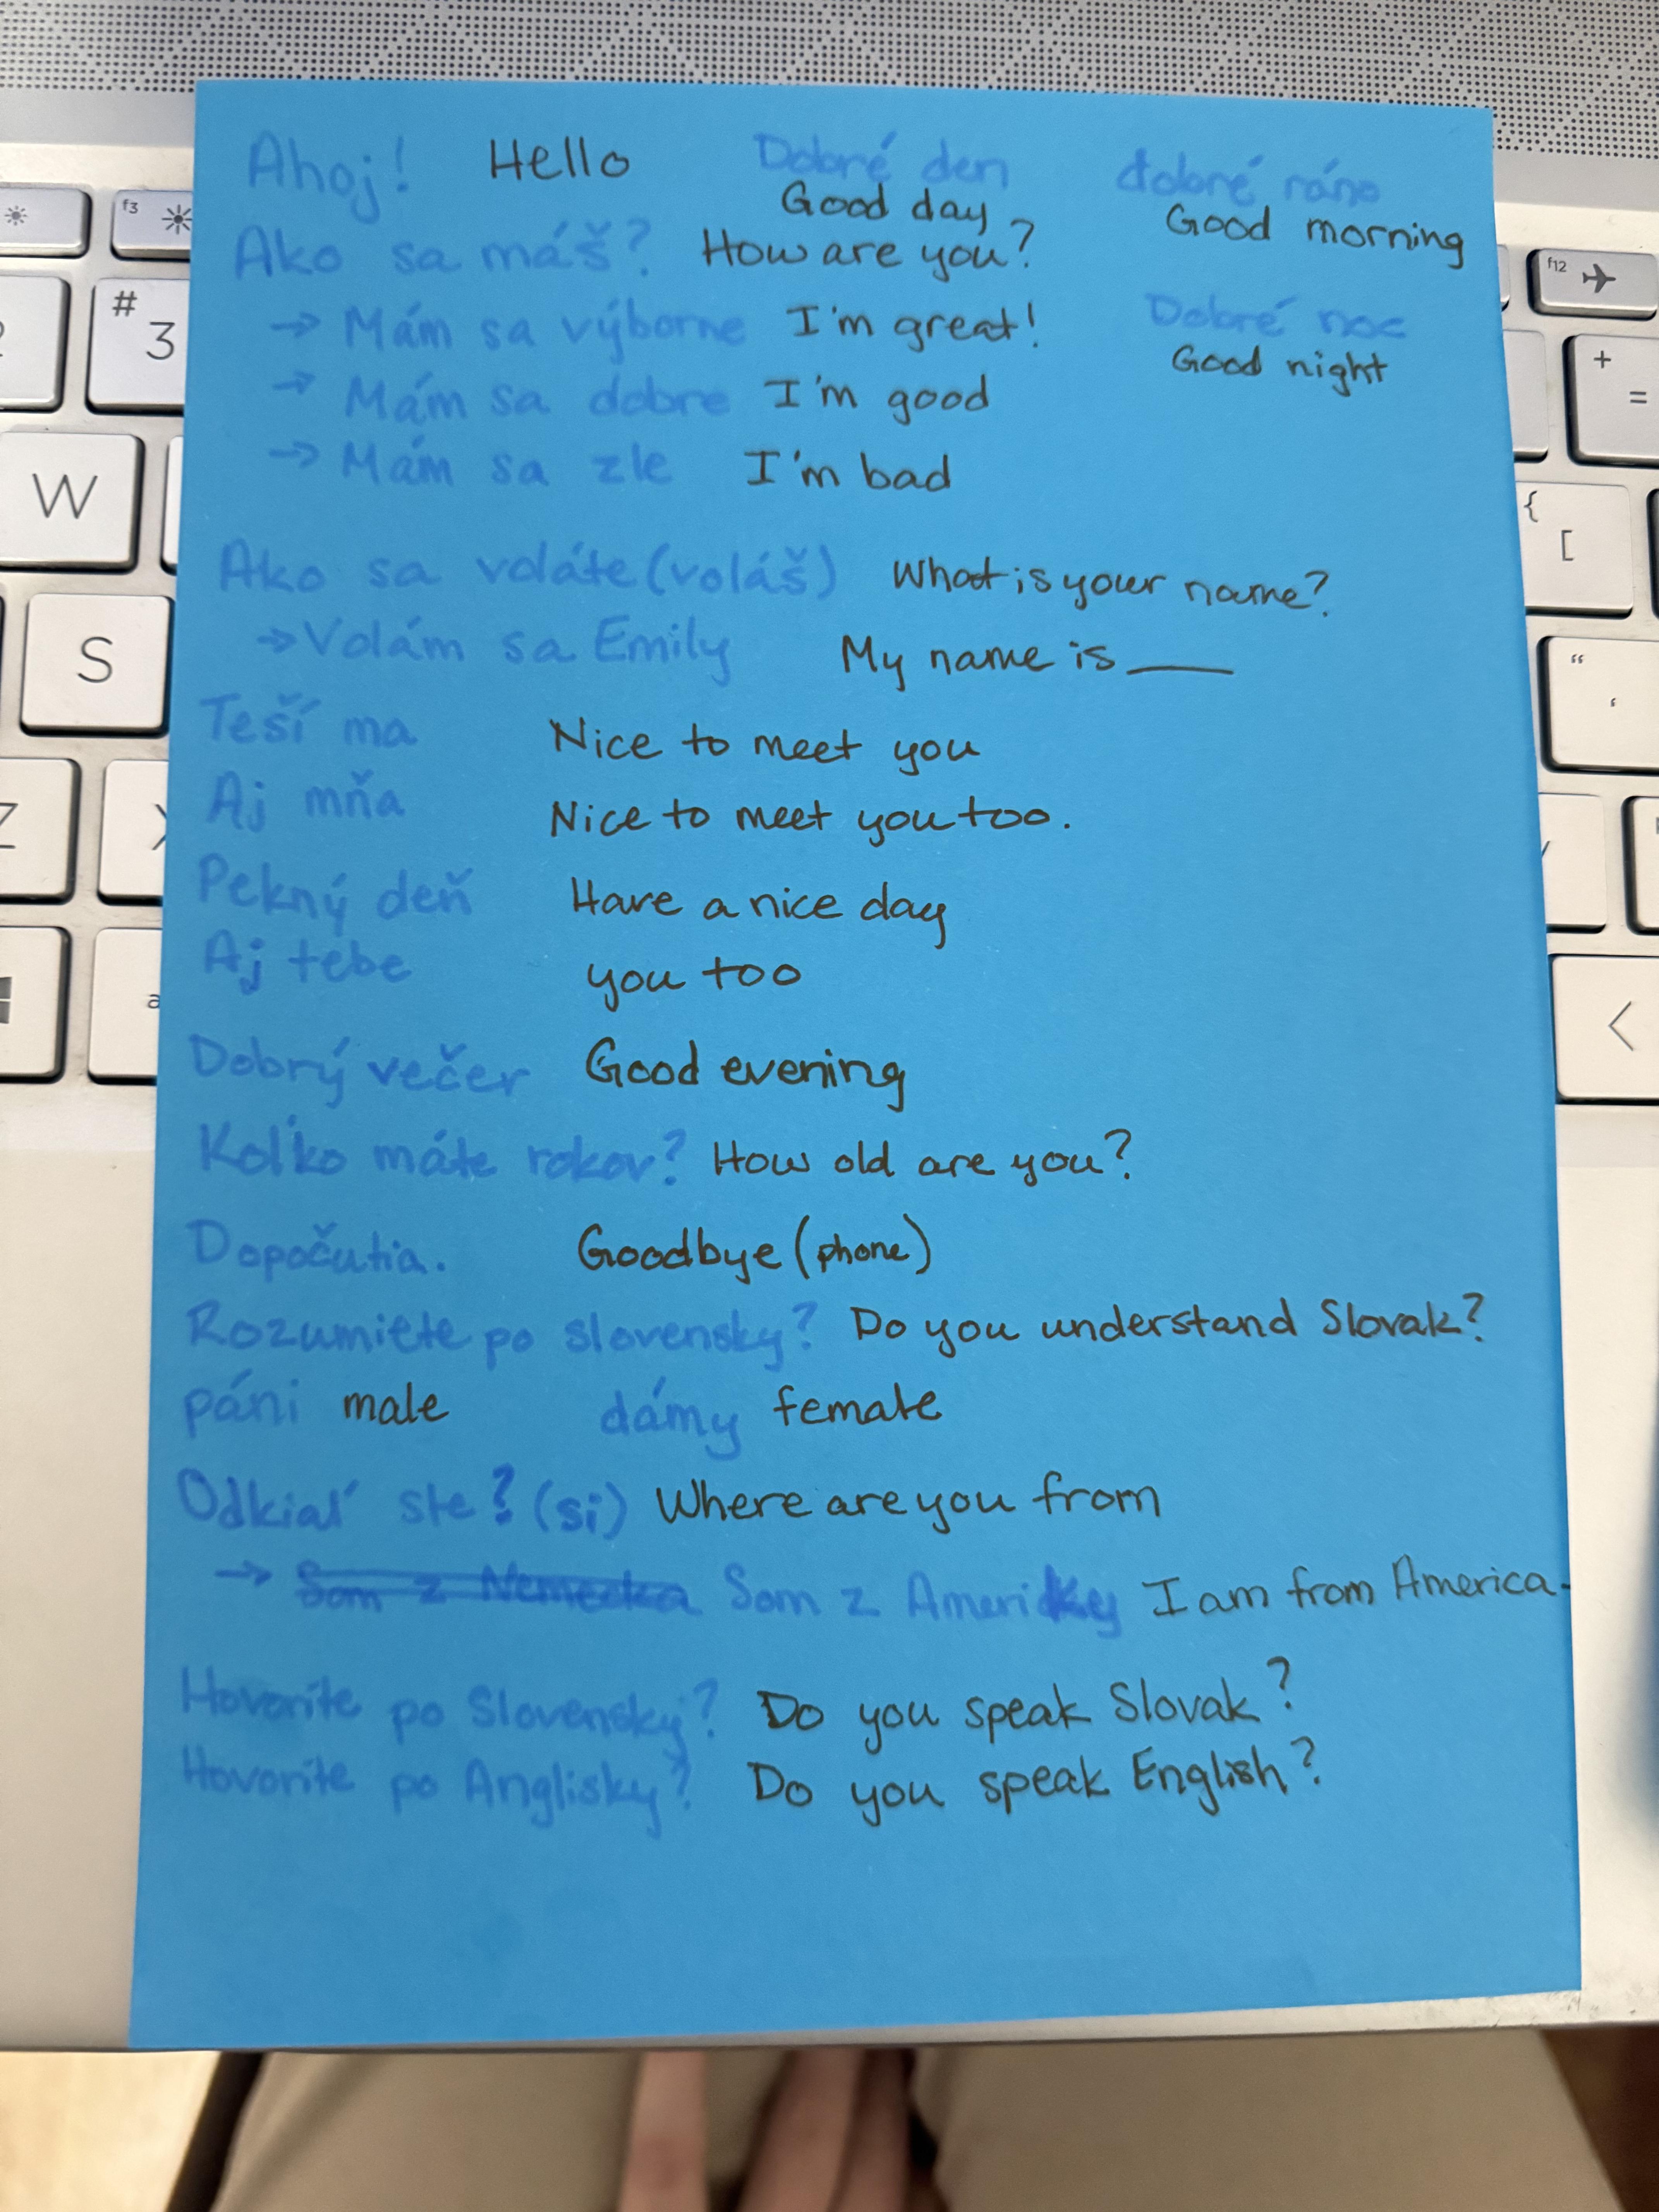 Ahoj! Hello Dobré den dobré ráno
Good day Good morning
Ako sa máš? How are you?
→ Mám sa výborne I'm great! Dobré noc
Good night
→ Mám sa dobre I'm good
→ Mám sa zle I'm bad
Ako sa voláte (voláš) What is your name?
→ Volám sa Emily My name is ____
Teší ma Nice to meet you
Aj mňa Nice to meet you too.
Pekný deň Have a nice day
Aj tebe you too
Dobrý večer Good evening
Koľko máte rokov? How old are you?
Dopočutia. Goodbye (phone)
Rozumiete po slovensky? Do you understand Slovak?
páni male dámy female
Odkiaľ ste? (si) Where are you from
→ Som z Nemecka Som z Ameriky I am from America.
Hovoríte po Slovensky? Do you speak Slovak?
Hovoríte po Anglisky? Do you speak English?
f3
f12
#
3
+
=
W
{
[
S
“
‘
Z
X
a
<